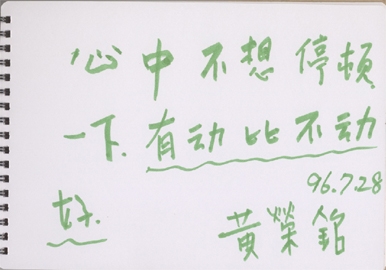 心中不想停頓
一下.有动比不动
好.
96.7.28
黃榮錦